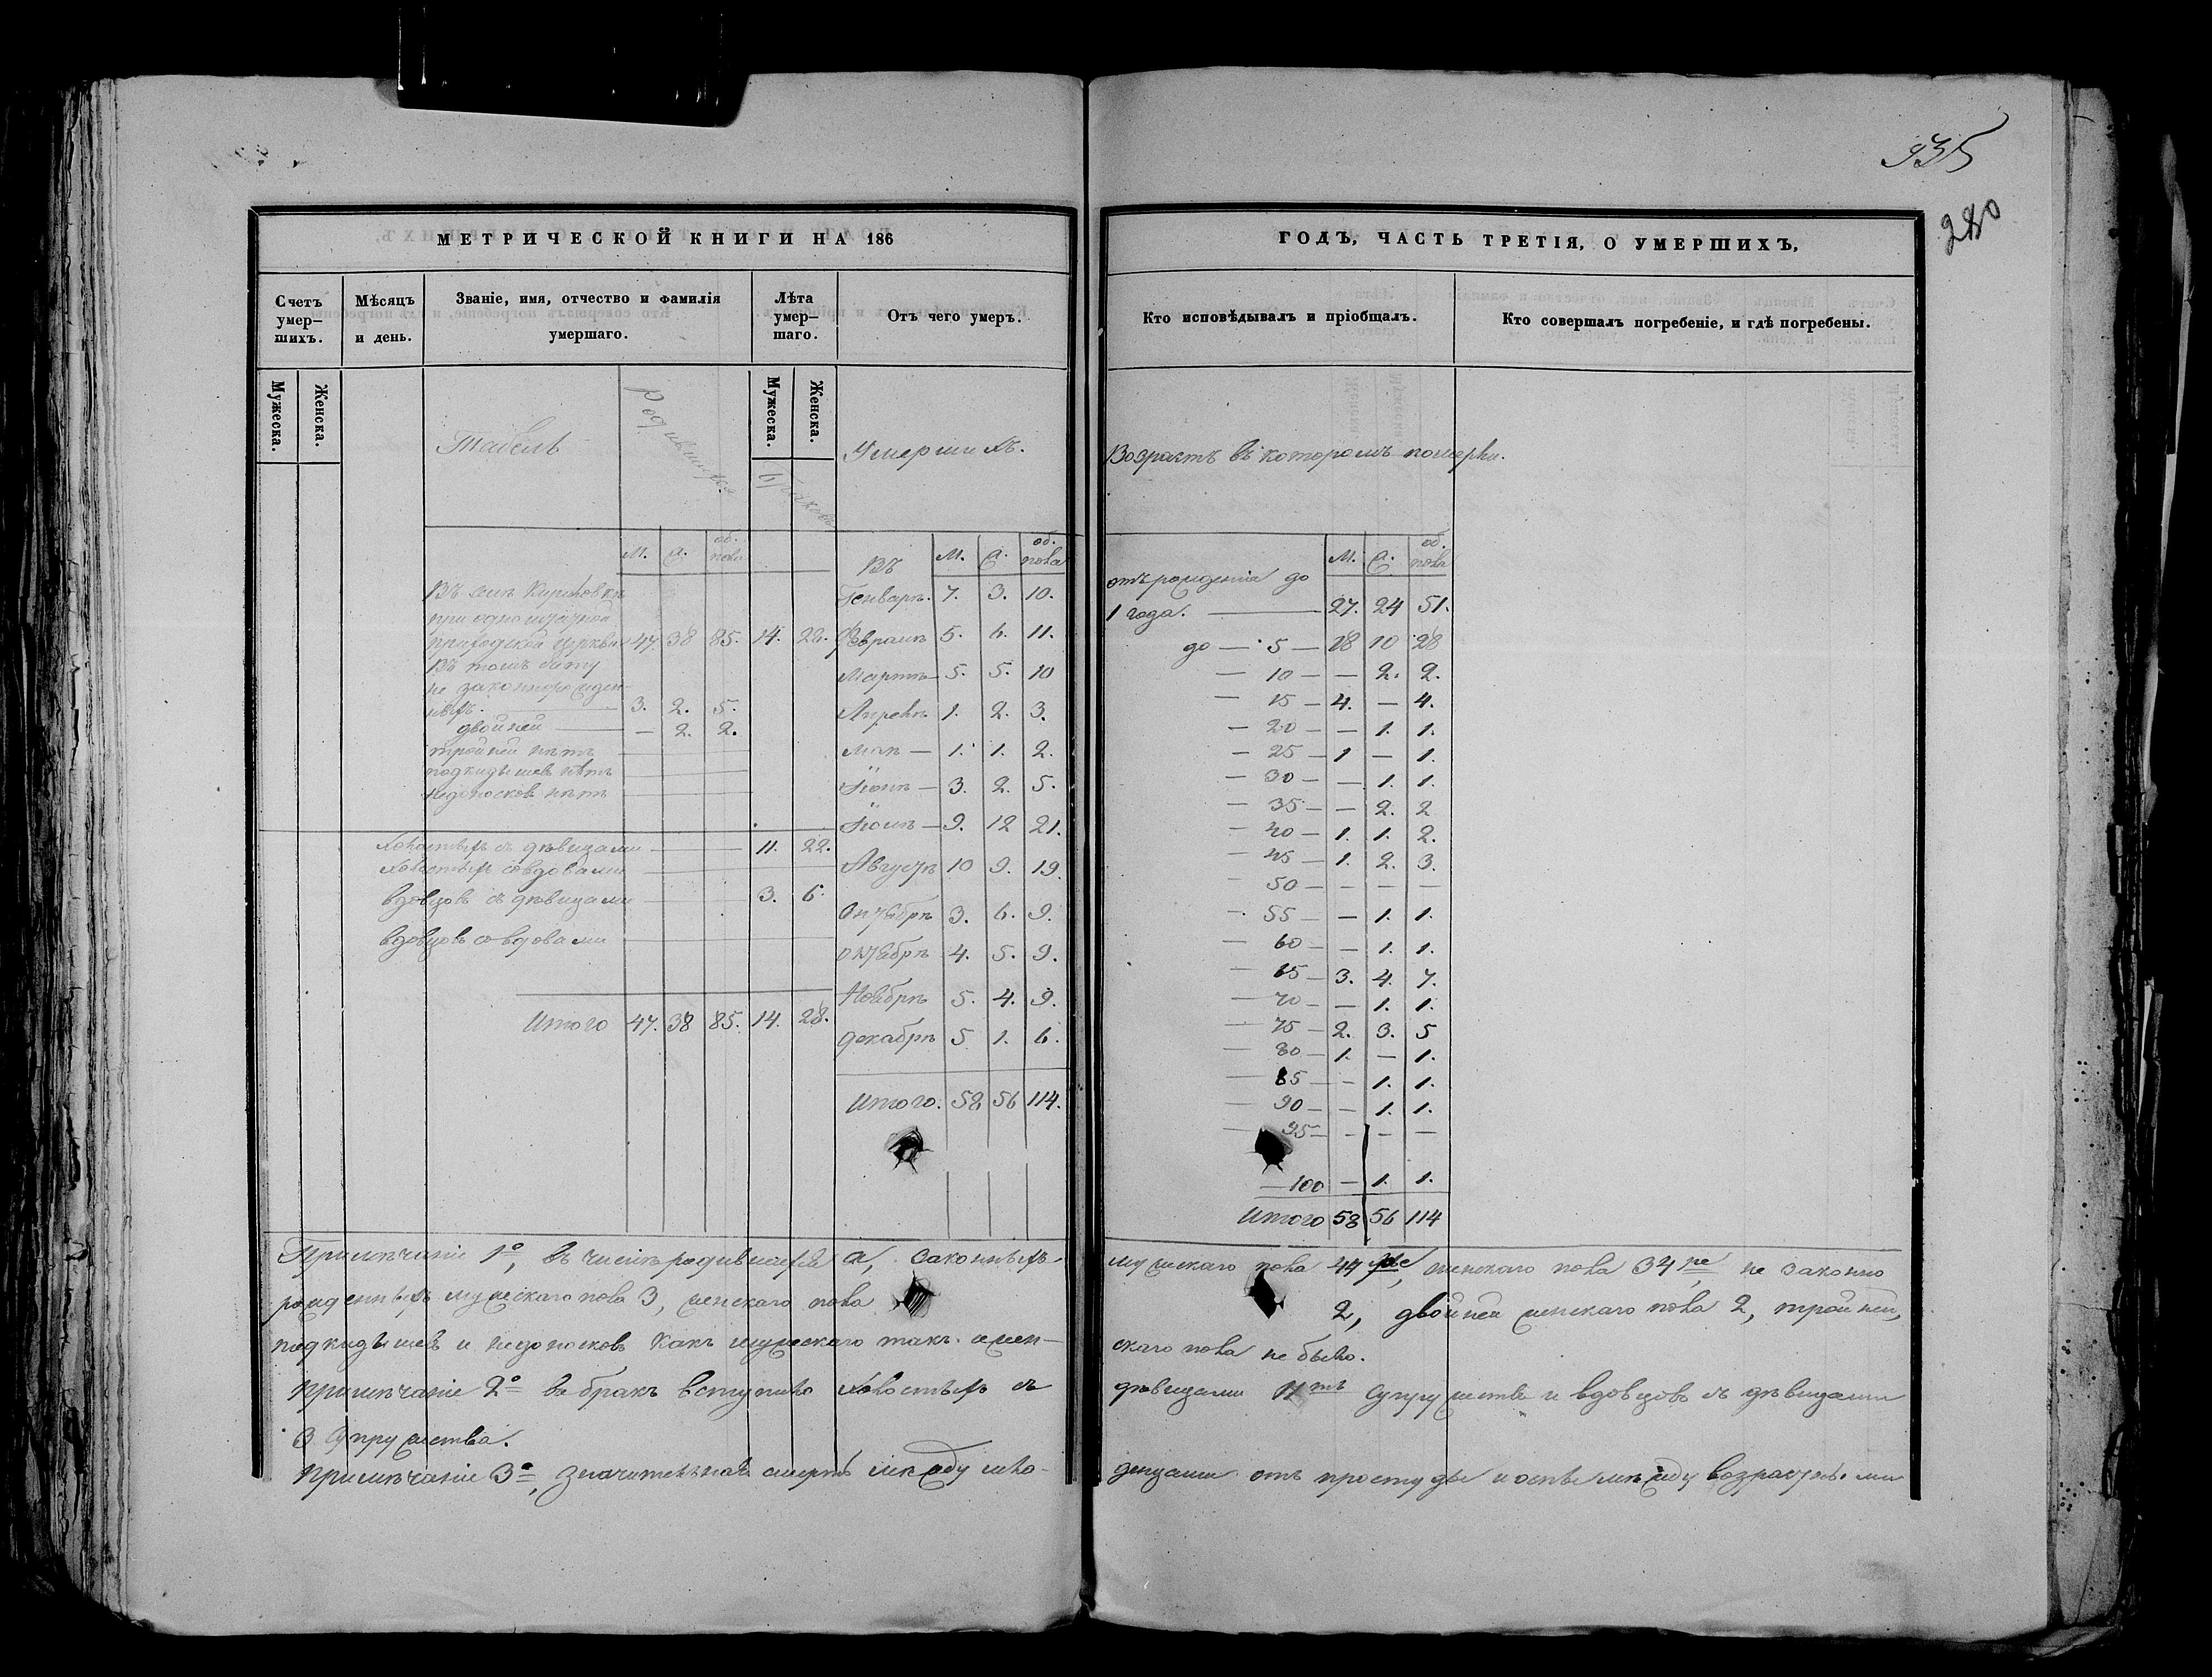 935
280
МЕТРИЧЕСКОЙ КНИГИ НА 186
Счетъ умер-
шихъ.
Мѣсяцъ
и день.
Званіе, имя, отчество и фамилія
умершаго.
Лѣта
умер-
шаго.
Отъ чего умеръ.
Мужеска.
Женска.
Мужеска.
Женска.
Табель
родившихся
Браковъ
Умершихъ.
М. Ѳ. об. пола
Въ
М. Ѳ. об. пола
при одноштатной
приходской церкви 47. 38 85. 14. 28.
Въ томъ числу
не законнорожден-
ныхъ. — 3. 2. 5.
двойней — — 2. 2.
тройней нѣтъ
подкидышев нѣтъ
недоносков нѣтъ
холостыхъ съ дѣвицами — 11. 22.
холостыхъ совдовами —
вдовцовъ съ дѣвицами — 3. 6.
вдовцовъ совдовами —
Итого 47. 38 85. 14. 28.
Генварѣ. 7. 3. 10.
Февралѣ 5. 6. 11.
Мартѣ 5. 5. 10
Апрелѣ 1. 2. 3.
Маѣ — 1. 1. 2.
Іюнѣ — 3. 2. 5.
Іюлѣ — 9. 12 21.
Августѣ 10 9. 19.
3. 6. 9.
октябрѣ 4. 5. 9.
Ноябрѣ 5. 4. 9.
декабрѣ 5 1. 6.
Итого. 58 56 114.
Примѣчаніе 1º, въ числѣ родившихся а, законныхъ
рожденныхъ мужескаго пола 3, женскаго пола
подкидышев и недоносков какъ мужескаго такъ и жен-
Примѣчаніе 2º въ бракъ вступило холостыхъ съ
3 супружества.
Примѣчаніе 3º, значительная смерть между мла-
ГОДЪ, ЧАСТЬ ТРЕТІЯ, О УМЕРШИХЪ,
Кто исповѣдывалъ и пріобщалъ.
Кто совершалъ погребеніе, и гдѣ погребены.
Возрастъ въ которомъ померли.
М. Ѳ. об. пола
отъ рожденія до
1 года. — 27. 24 51.
до — 5 — 18 10 28
— 10 — — 2. 2.
— 15 — 4. — 4.
— 20 — — 1. 1.
— 25 — 1 — 1.
— 30 — — 1. 1.
— 35 — — 2. 2
— 40 — 1. 1. 2.
— 45 — 1. 2. 3.
50 — — — —
— 55 — — 1. 1.
— 60 — — 1. 1.
— 65 — 3. 4. 7.
— 70 — — 1. 1.
— 75 — 2. 3. 5
— 80 — 1. — 1.
— 85 — — 1. 1.
— 90 — — 1. 1.
— 95 — — — —
— 100 — 1. 1.
Итого 58 56 114
мужскаго пола 44, женскаго пола 34, не законно
2, двойней женскаго пола 2, тройней,
скаго пола не было.
дѣвицами 11ть супружествъ и вдовцовъ съ дѣвицами
денцами отъ простуды и оспы между возрастными